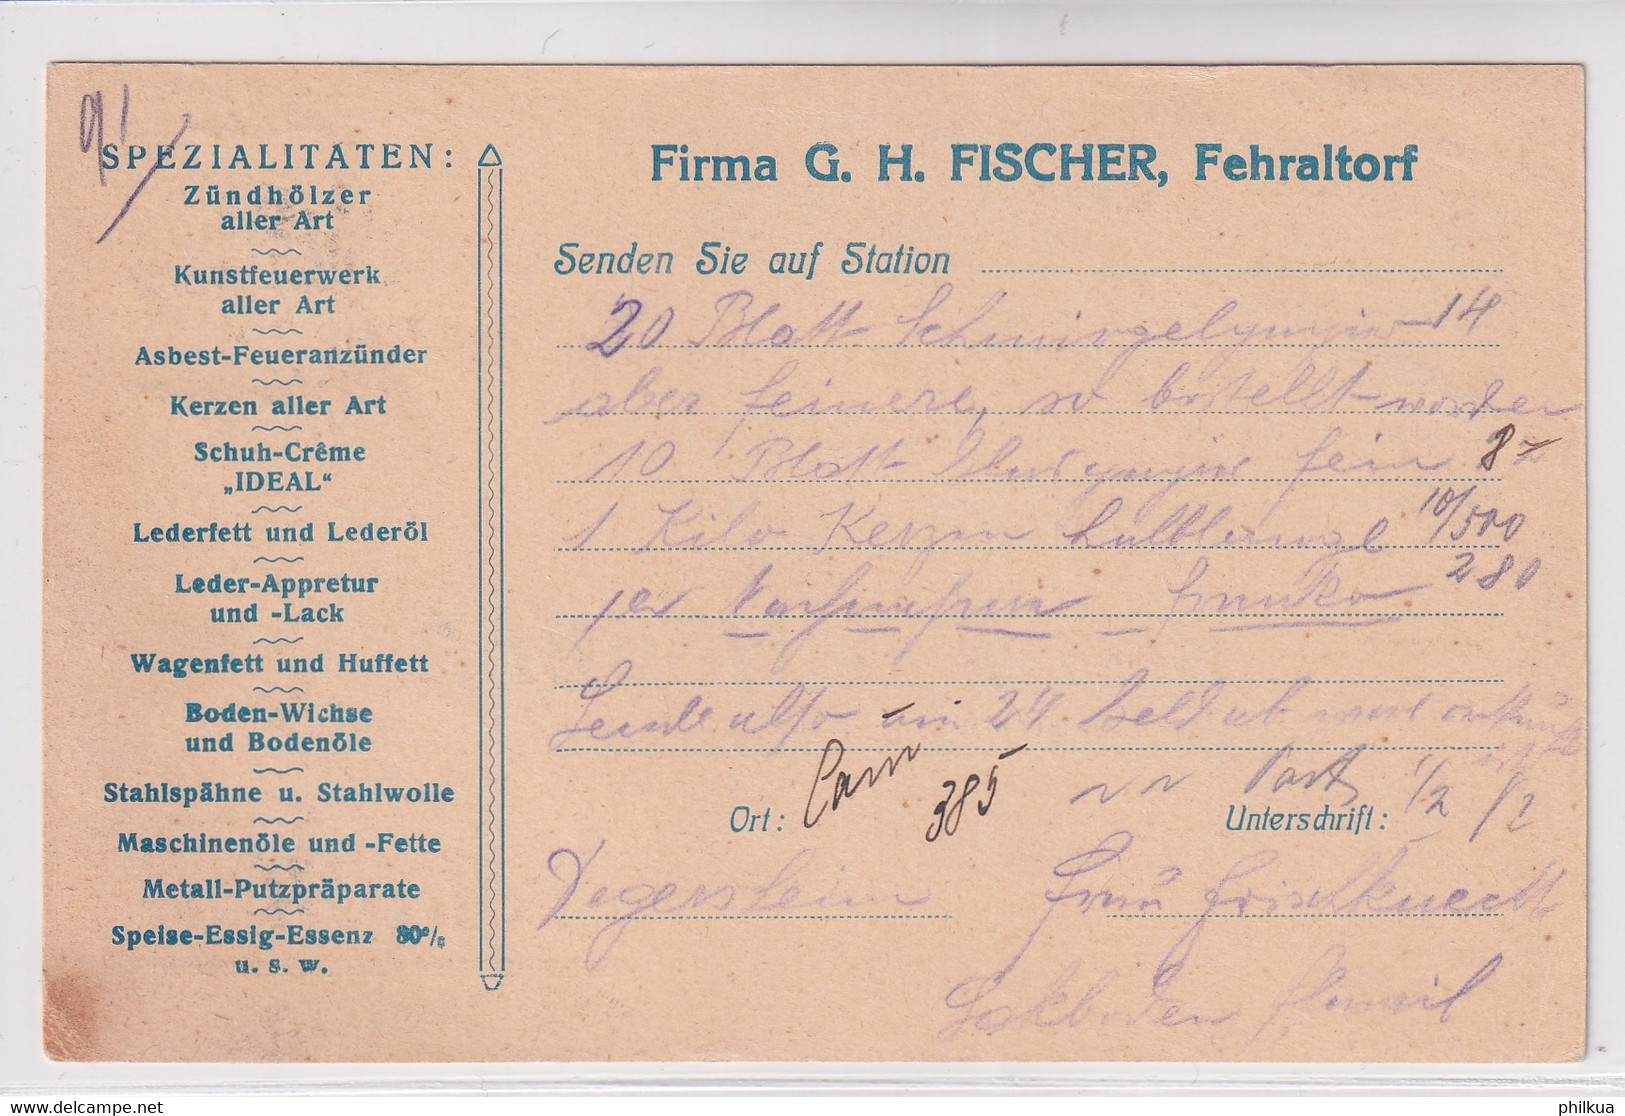 SPEZIALITÄTEN:
Zündhölzer
aller Art
Kunstfeuerwerk
aller Art
Asbest-Feueranzünder
Kerzen aller Art
Schuh-Crême
„IDEAL“
Lederfett und Lederöl
Leder-Appretur
und -Lack
Wagenfett und Huffett
Boden-Wichse
und Bodenöle
Stahlspähne u. Stahlwolle
Maschinenöle und -Fette
Metall-Putzpräparate
Speise-Essig-Essenz 80%
u. s. w.
Firma G. H. FISCHER, Fehraltorf
Senden Sie auf Station
20 Blatt 14
aber feinere, so bestellt worden
10 Blatt fein 8
1 Kilo Kerzen 10/500
per franko 280
Sende also am 24
Ort: 385 Unterschrift: 1/2 1/2
Degersheim Frau Frischknecht
Flawil
philkua